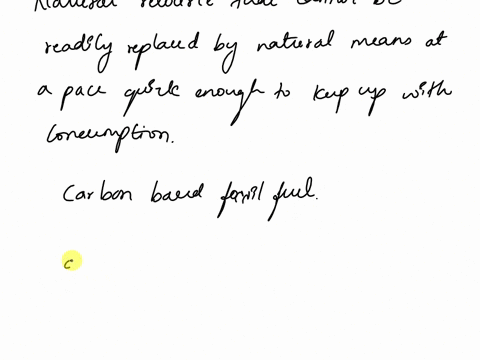 Natural resource that cannot be
readily replaced by natural means at
a pace quick enough to keep up with
Consumption.
Carbon based fossil fuel.
c